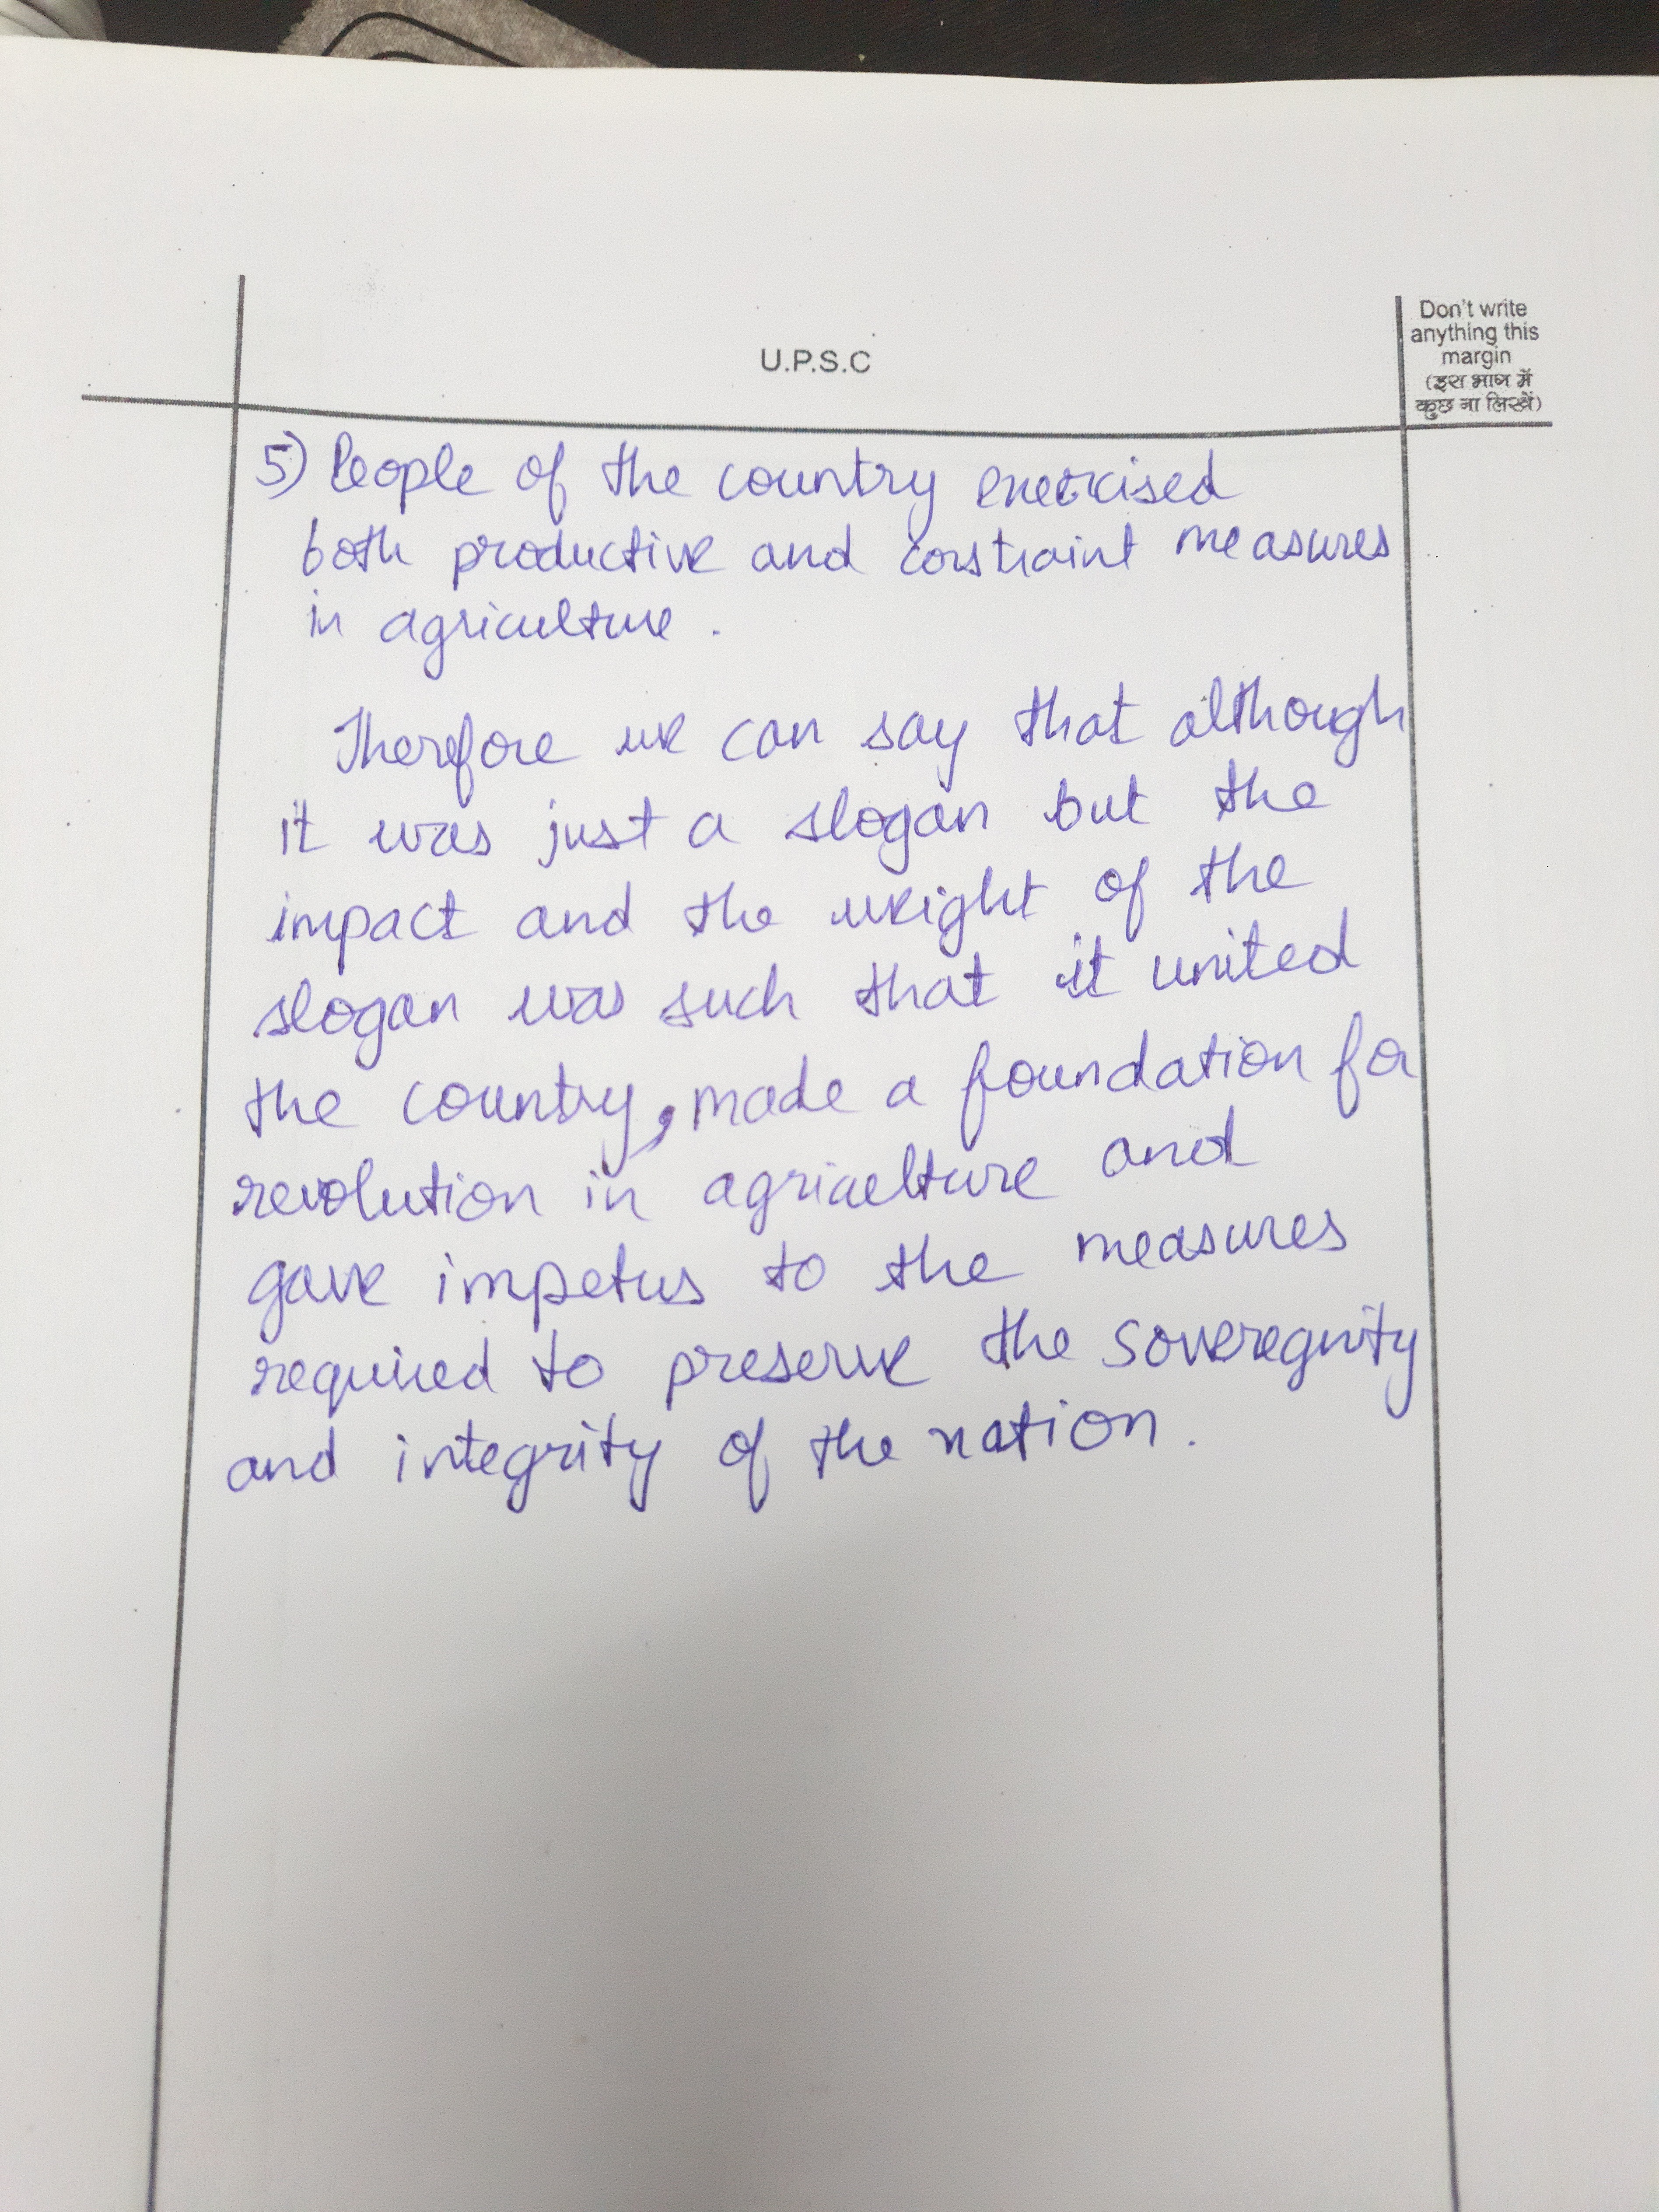 U.P.S.C
Don't write
anything this
margin
(इस भाग में
कुछ ना लिखें)
5) People of the country exercised
both productive and constraint measures
in agriculture.
Therefore we can say that although
it was just a slogan but the
impact and the weight of the
slogan was such that it united
the country, made a foundation for
revolution in agriculture and
gave impetus to the measures
required to preserve the sovereignity
and integrity of the nation.